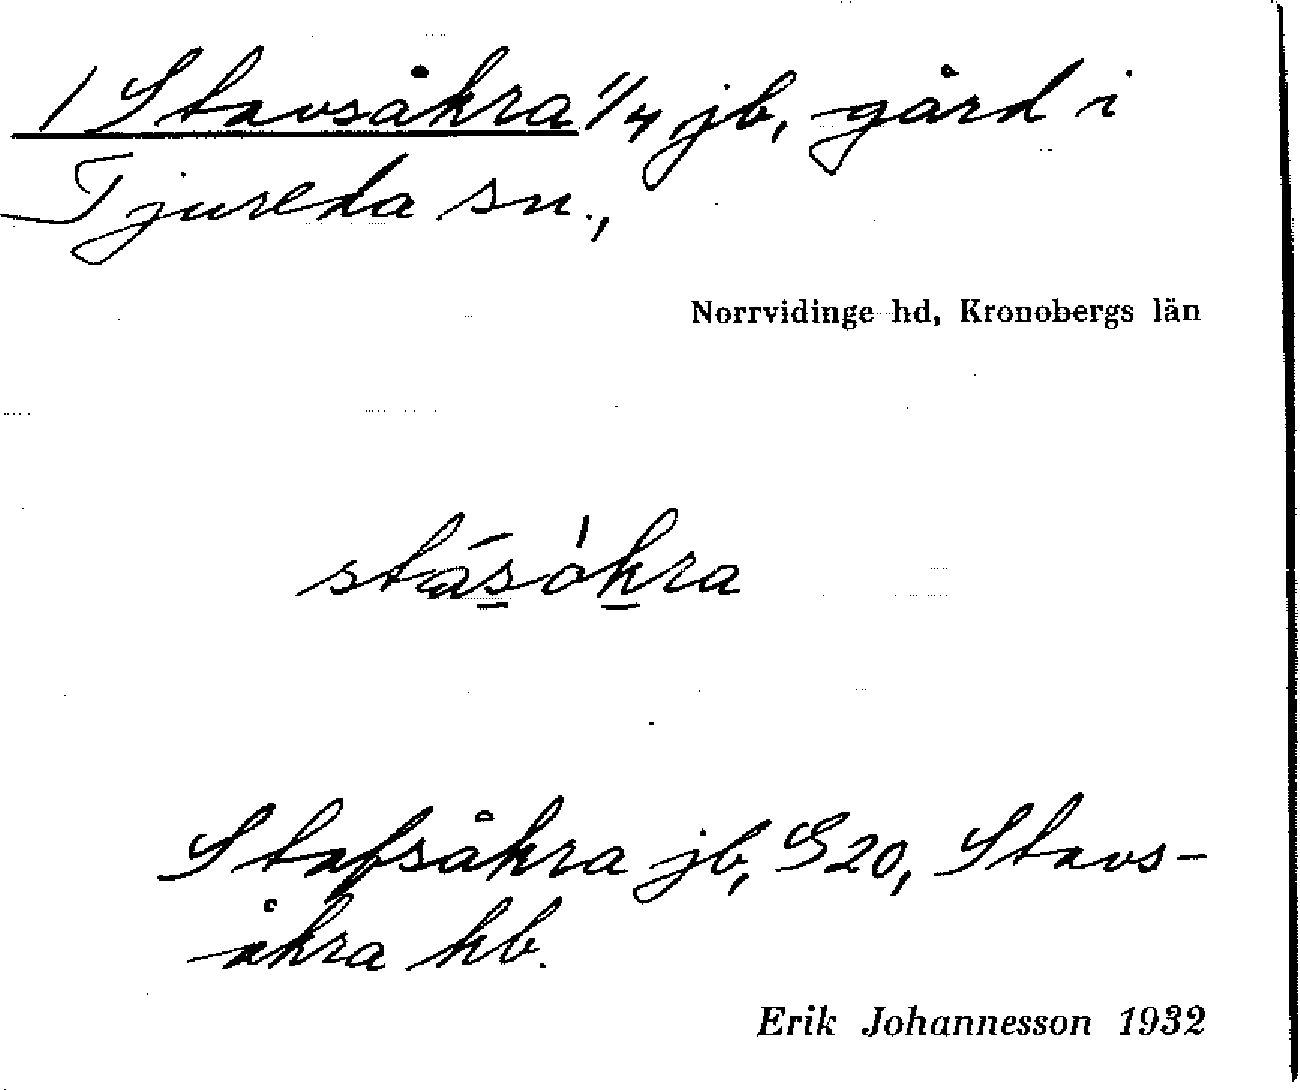 1 Stavsåkra 1/4 jb, gård i
Tjureda sn.,
Norrvidinge hd, Kronobergs län
stásókra
Stafsåkra jb, G20, Stavs-
åkra hb.
Erik Johannesson 1932